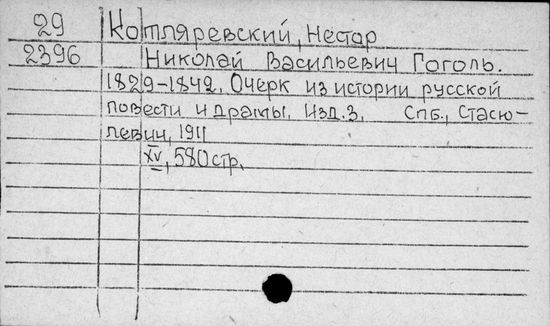 29 Котляревский, Нестор
2396 Николай Васильевич Гоголь.
1829-1842. Очерк из истории русской
повести и драмы. Изд.3. Спб., Стасю-
левич, 1911
XV, 580 стр.